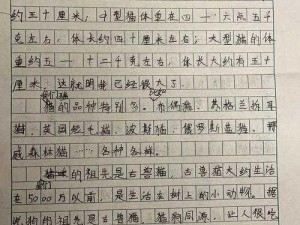 约五十厘米；中型猫体重在四一六点五千
克左右，体长约四十厘米左右；大型猫的体
重约五一十二千克左右，体长大约有五十
厘米，这就明
已经很大了。
猫的品种特别多。布偶猫、英格兰折耳
猫、英国短毛猫、波斯猫、俄罗斯蓝猫、挪
威森林猫……各种各样。
的祖先是古兽猫，古兽猫大约生活
在5000万以前，是生活在树上的小动物。据
说狗的祖先是古兽猫，猫狗同源，让人很吃